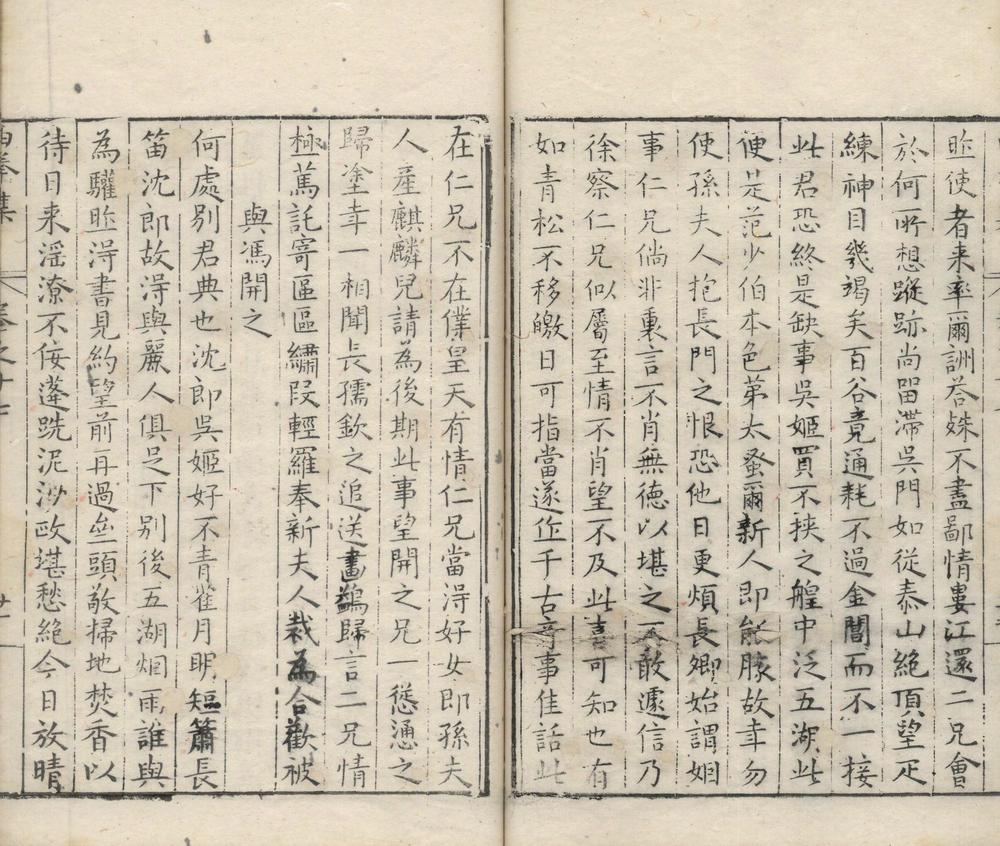 昨使者来率爾詶荅姝不盡鄙情婁江還二兄會
於何所想蹤跡尚畱滯吳門如從泰山絶頂望疋
練神目幾竭矣百谷竟通耗不過金閶而不一接
此君恐終是缺事吳姬買不挾之艎中泛五湖此
便是范少伯本色弟太蚤爾新人即能豚故幸勿
使孫夫人抱長門之恨恐他日更煩長卿始謂姻
事仁兄倘非裏言不肖無德以堪之不敢遽信乃
徐察仁兄似屬至情不肖望不及此喜可知也有
如青松不移皦日可指當遂作千古竒事佳話此
在仁兄不在僕皇天有情仁兄當淂好女即孫夫
人産麒麟兒請為後期此事望開之兄一慫慂之
歸塗幸一相聞長孺欽之追送畫鷁歸言二兄情
極篤託寄區區繡段輕羅奉新夫人裁為合歡被
與馮開之
何處别君典也沈郎吳姬好不青雀月明短簫長
笛沈郎故淂與麗人俱足下别後五湖烟雨誰與
為驩昨淂書見約望前再過垒頭敬掃地焚香以
待日来滛潦不佞蓬跣泥沙政堪愁絶今日放晴
白榆集
卷之十七
廿一